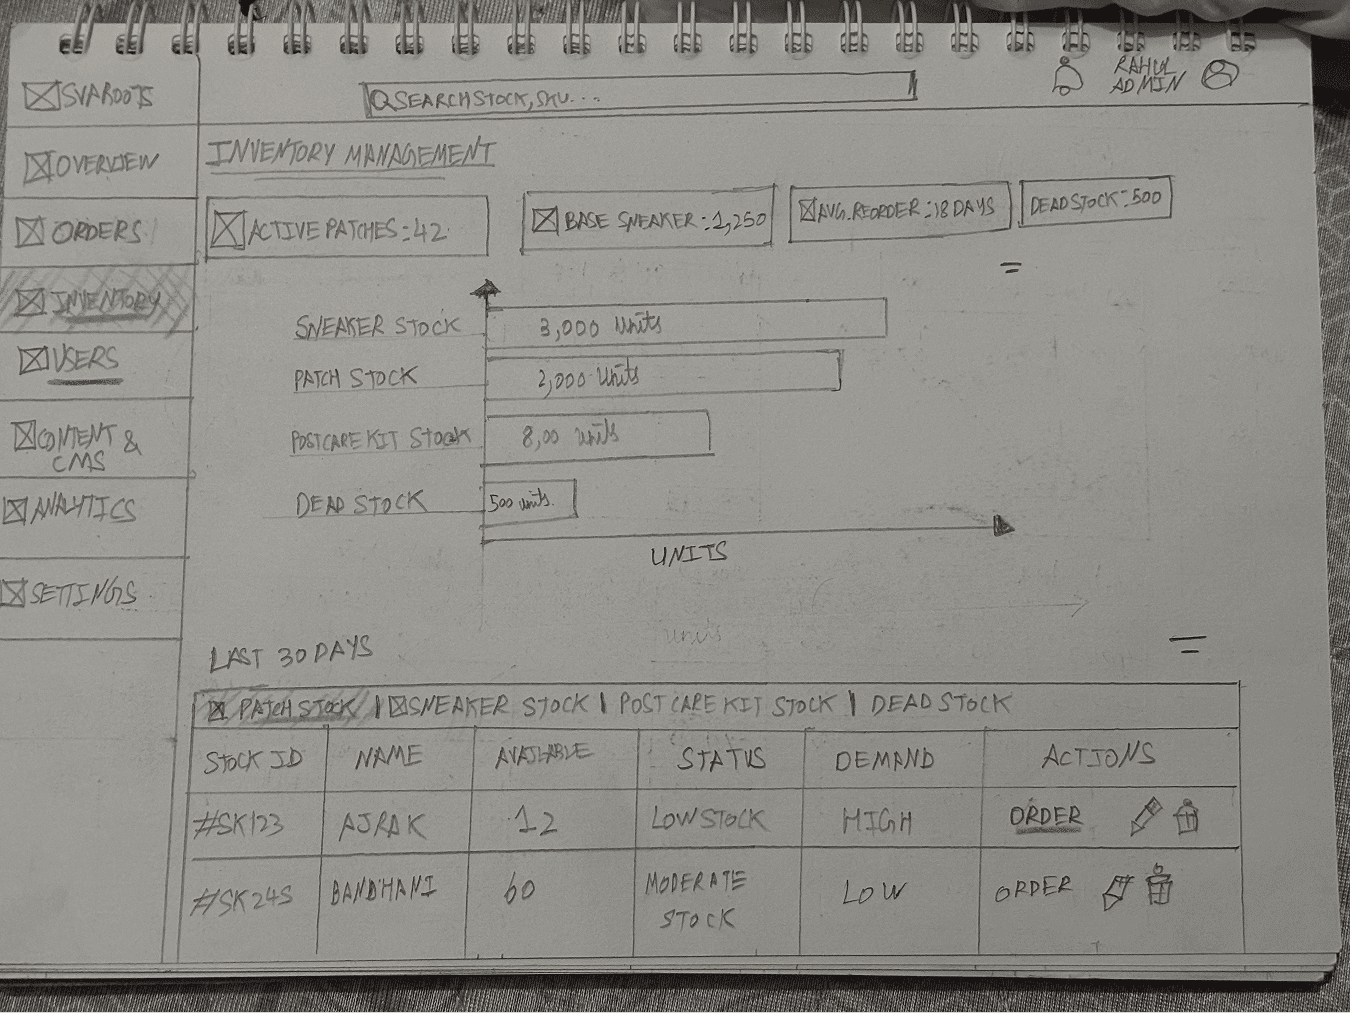 SVAROOTS
SEARCH STOCK, SKU...
RAHUL
ADMIN
OVERVIEW
ORDERS
INVENTORY
USERS
CONTENT &
CMS
ANALYTICS
SETTINGS
INVENTORY MANAGEMENT
ACTIVE PATCHES:-42
BASE SNEAKER:-1,250
AVG. REORDER:-18 DAYS
DEAD STOCK:-500
SNEAKER STOCK 3,000 Units
PATCH STOCK 2,000 Units
POSTCARE KIT STOCK 8,00 units
DEAD STOCK 500 units.
UNITS
units
LAST 30 DAYS
PATCH STOCK | SNEAKER STOCK | POST CARE KIT STOCK | DEAD STOCK
STOCK ID NAME AVAILABLE STATUS DEMAND ACTIONS
#SK123 AJRAK 12 LOW STOCK HIGH ORDER
#SK245 BANDHANI 60 MODERATE STOCK LOW ORDER